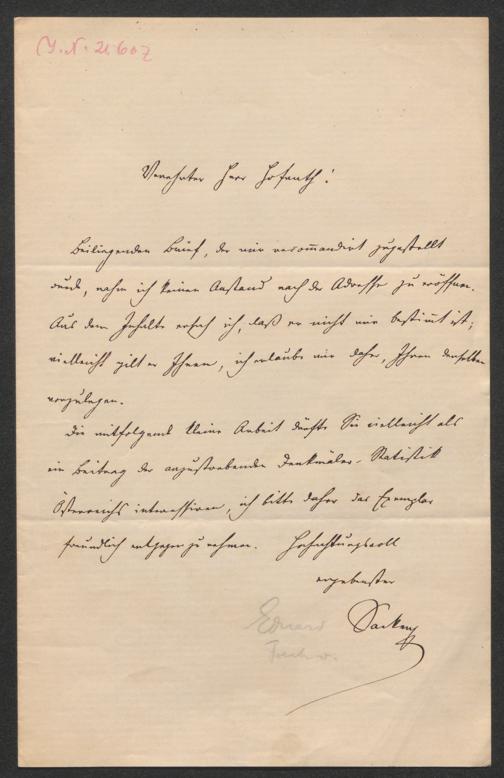 I. N. 21602
Verehrter Herr Hofrath!
Beiliegenden Brief, der mir recommandirt zugestellt
wurde, nahm ich keinen Anstand nach der Adresse zu eröffnen.
Aus dem Inhalte ersah ich, daß er nicht mir bestimmt ist;
vielleicht gilt er Ihnen, ich erlaube mir daher, Ihnen denselben
vorzulegen.
Die mitfolgende kleine Arbeit dürfte Sie vielleicht als
ein Beitrag der anzustrebenden Denkmäler-Statistik
Österreichs interessiren, ich bitte daher das Exemplar
freundlich entgegen zu nehmen. Hochachtungsvoll
ergebenster
Sacken
Eduard